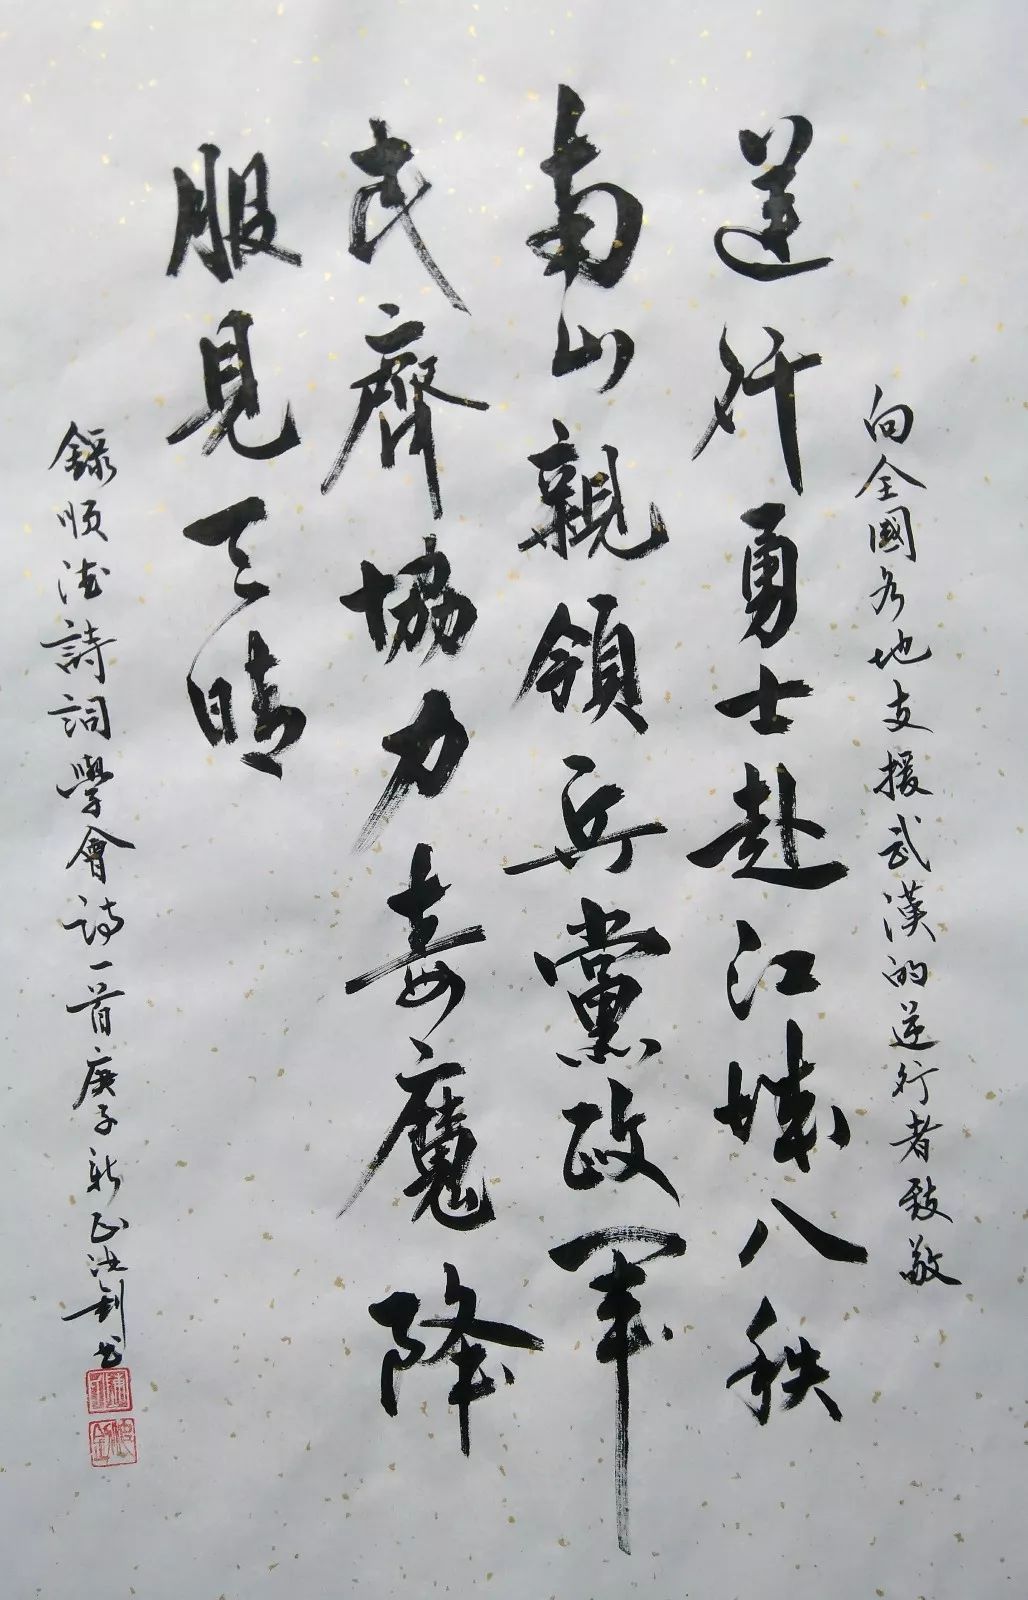 向全國各地支援武漢的逆行者致敬
逆行勇士赴江城八秩
南山親領兵黨政軍
民齊協力毒魔降
服見天晴
錄順德詩詞學會詩一首庚子新正洪釗書